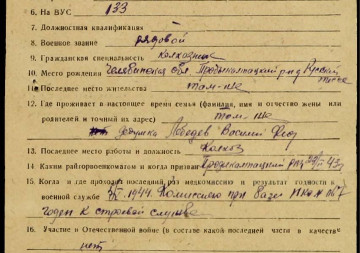 6. На ВУС 133
7. Должностная квалификация
8. Военное звание рядовой
9. Гражданская специальность колхозник
10. Место рождения Челябинская обл.
11. Последнее место жительства там-же
12. Где проживает в настоящее время семья (фамилия, имя и отчество жены или
родителей и точный их адрес) там-же
дедушка Лебедев Василий
13. Последнее место работы и должность Колхоз
14. Каким райгорвоенкоматом и когда призван
15. Когда и где проходил последний раз медкомиссию и результат годности к
военной службе 1944. Комиссией при
годен к строевой службе
16. Участие в Отечественной войне (в составе какой последней части в качестве
нет